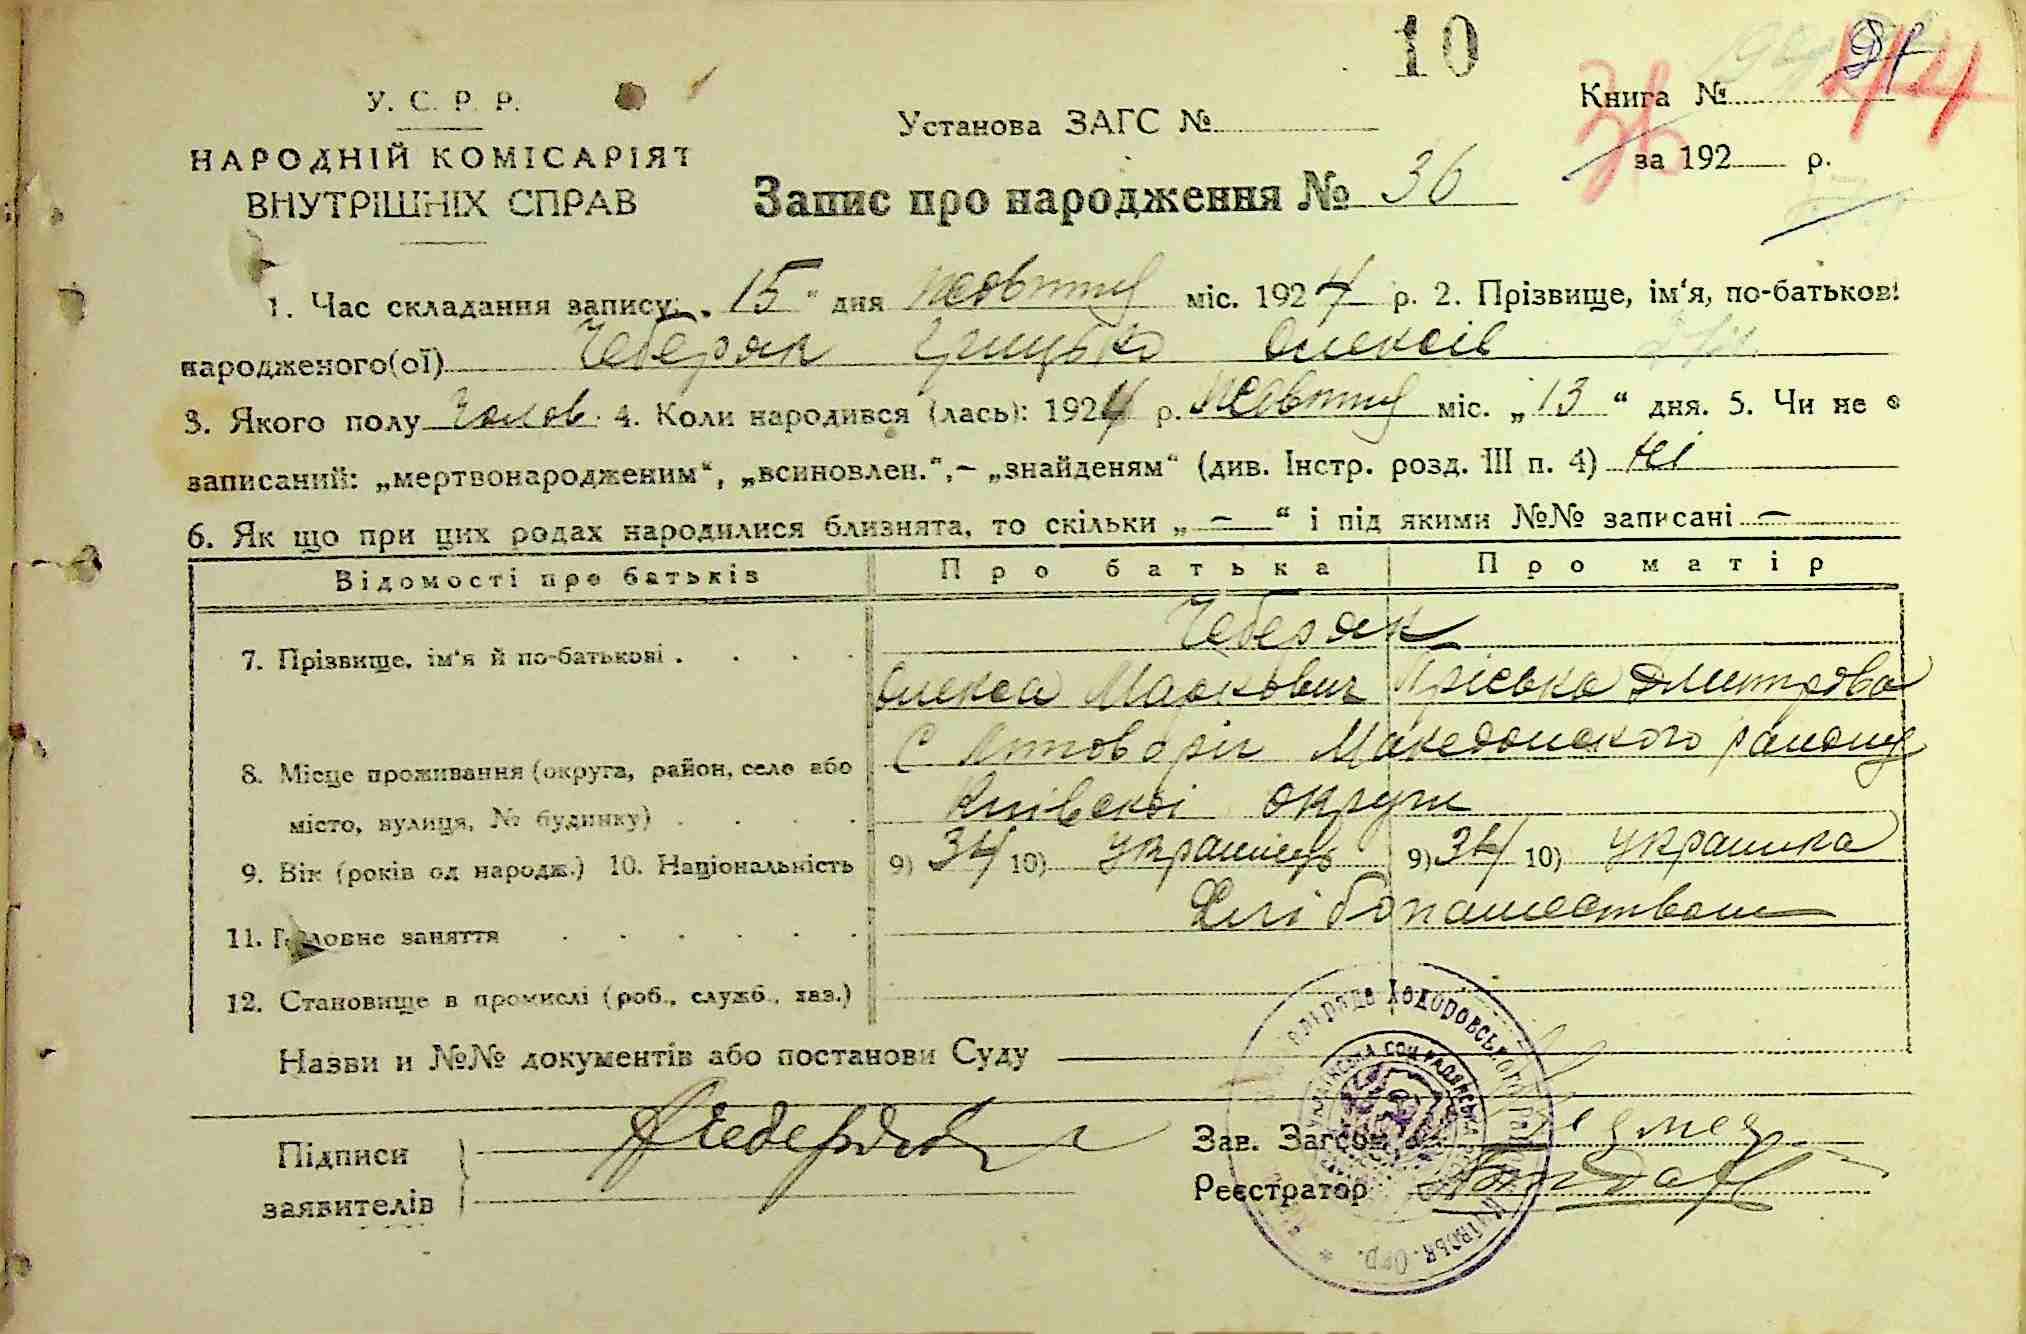 10
У. С. Р. Р.
НАРОДНІЙ КОМІСАРІЯТ
ВНУТРІШНІХ СПРАВ
Установа ЗАГС №
Книга № 44
36
за 192 р.
Запис про народження № 36
1. Час складання запису: „15“ дня жовтня міс. 1924 р. 2. Прізвище, ім‘я, по-батькові
народженого(ої) Чеберяк Грицько Олексів
3. Якого полу чолов. 4. Коли народився (лась): 1924 р. жовтня міс. „13“ дня. 5. Чи не є
записаний: „мертвонародженим“, „всиновлен.“,— „знайденям“ (див. Інстр. розд. III п. 4) ні
6. Як що при цих родах народилися близнята, то скільки „ — “ і під якими №№ записані —
Відомості про батьків Про батька Про матір
7. Прізвище, ім‘я й по-батькові . . . . Чеберяк
Олекса Маркович Пріська Дмитрова
8. Місце проживання (округа, район, село або
місто, вулиця, № будинку) . . . .
С Македонского району
Київскоі округи
9. Вік (років од народж.) 10. Національність 9) 34 10) українець 9) 34 10) українка
11. Головне заняття . . . . . . Хлібопашеством
12. Становище в промислі (роб., служб., хаз.)
Назви и №№ документів або постанови Суду
Підписи
заявителів
Чеберяк
Зав. Загсом
Реєстратор
сільрада Ходорівського Київськ. Окр.
УКРАЇНСЬКА СОЦ. РАДЯНСЬКА